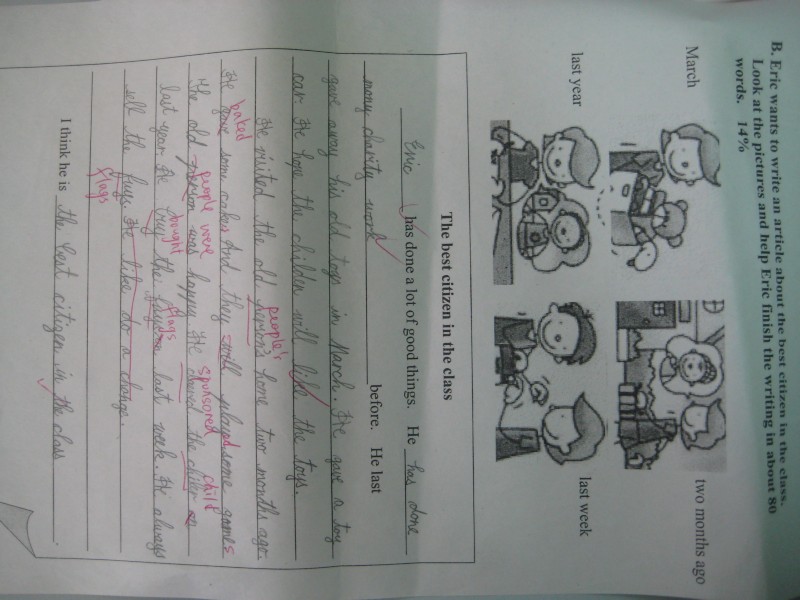 B. Eric wants to write an article about the best citizen in the class.
Look at the pictures and help Eric finish the writing in about 80
words. 14%
March
two months ago
last year
last week
The best citizen in the class
Eric has done a lot of good things. He has done
many charity work before. He last
gave away his old toys in March. He gave a toy
car. He hope the children will like the toys.
people's
He visited the old person's home two months ago.
baked
He gave some cakes. And they will played some games
people were sponsored child
The old person was happy. He
last year. He buy the last week. He always
bought flags
sell the He like do a change.
flags
I think he is the best citizen in the class.